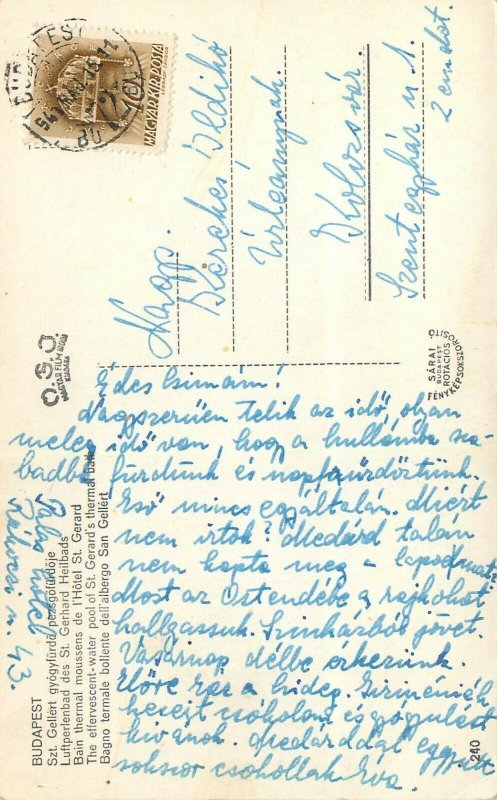 BUDAPEST
MAGYAR KIR. POSTA
Nagys.
Kerekes Ildikó
Úrleánynak
Kolozsvár
Szentegyház u 1.
2 em. dst.
O.S.J.
MAGYAR FILM IRODA
KIADÁSA
SÁRAI
BUDAPEST
ROTÁCIÓS
FÉNYKÉPSOKSZOROSITÓ
Édes Cimám!
Nagyszerűen telik az idő, olyan
meleg idő van, hogy a hullámba sza-
badba fürdünk és napfürdőztünk.
Eső nincs egyáltalán. Miért
nem irtok? Medárd talán
nem kapta meg a lapodmat
Most az Ostendébe a rajkókat
hallgassuk. Szinházból jövet.
Vasárnap délbe érkezünk.
Előre ráz a hideg. Irinémék
kezeit csókolom és gyógyulást
kivánok. Medárddal együtt
sokszor csókollak Éva.
43.
BUDAPEST
Szt. Gellért gyógyfürdő pezsgőfürdője
Luftperlenbad des St. Gerhard Heilbads
Bain thermal moussens de l'Hôtel St. Gerard
The effervescent-water pool of St. Gerard's thermal bath
Bagno termale bollente dell'albergo San Gellért
240